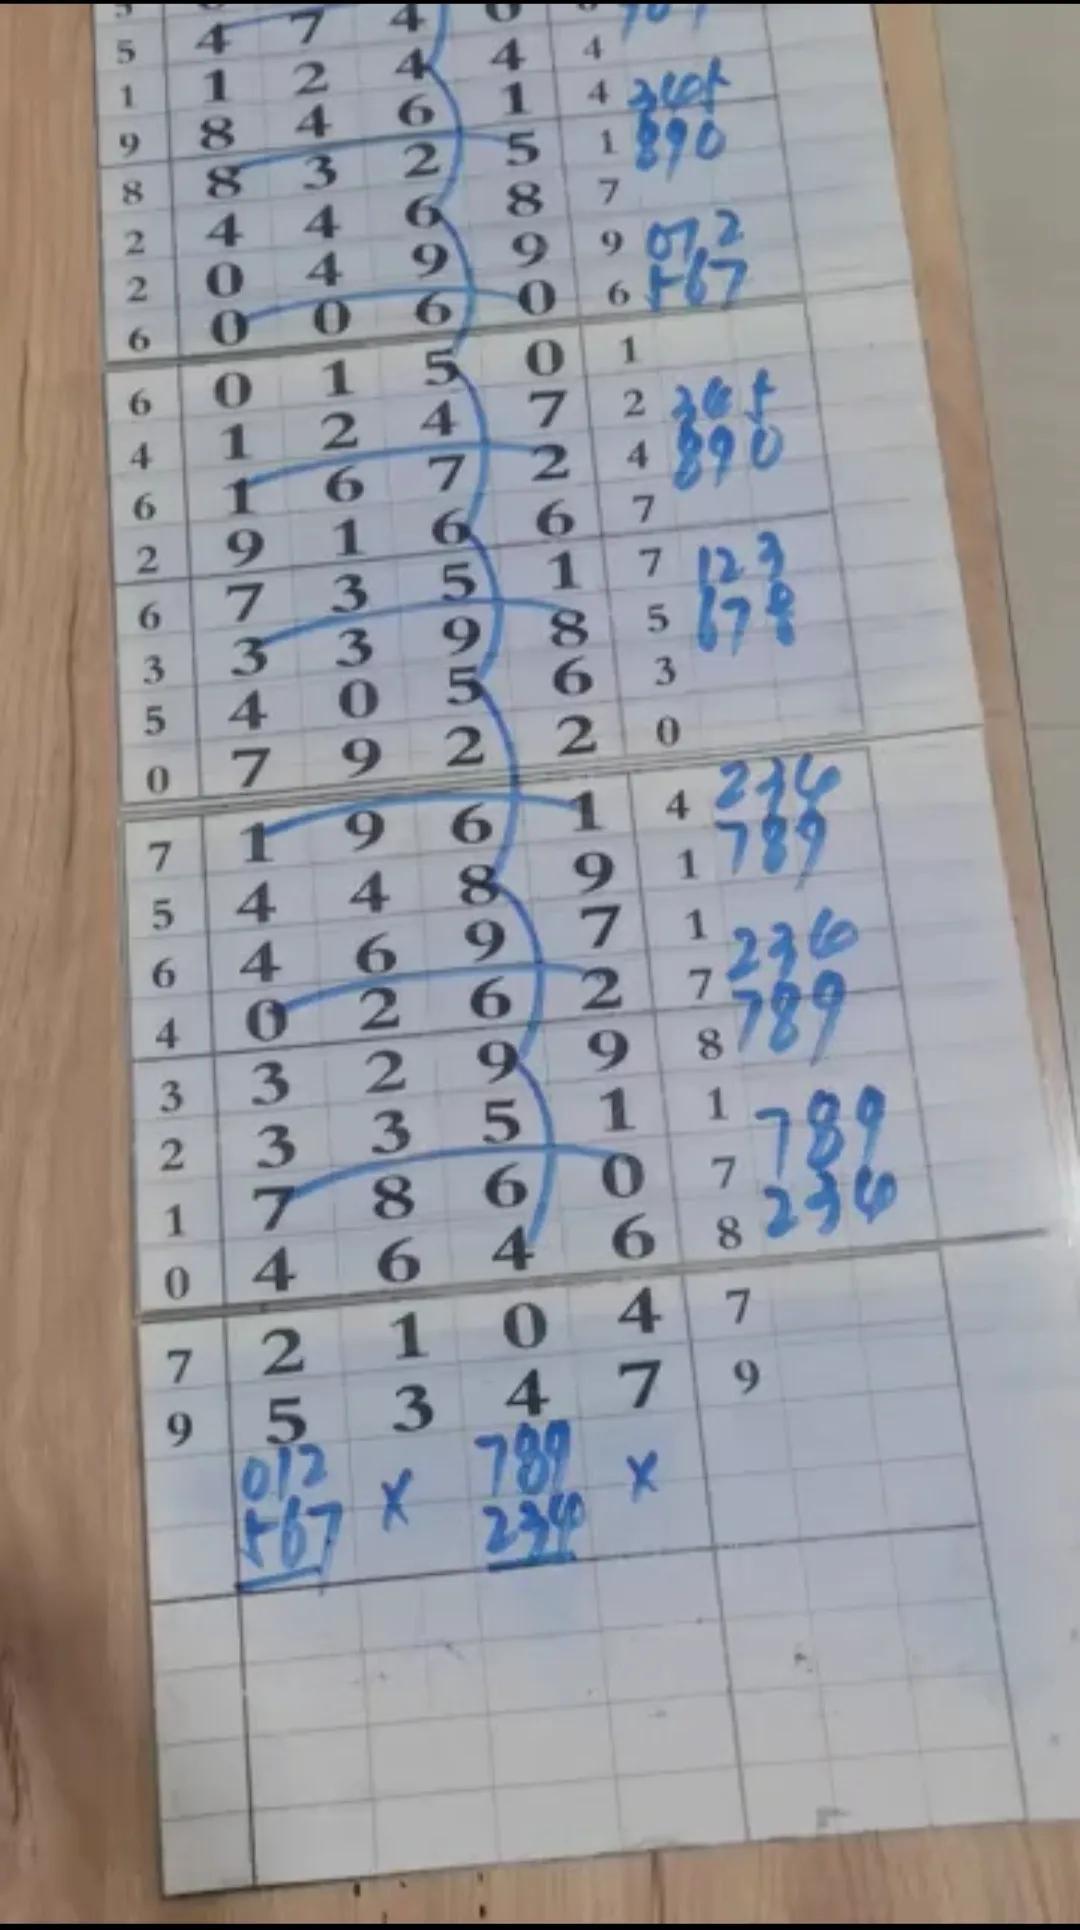 5 4 7 4
1 1 2 4 4 4
9 8 4 6 1 4 345
8 8 3 2 5 1 890
2 4 4 6 8 7
2 0 4 9 9 9 012
6 0 0 6 0 6 567
6 0 1 5 0 1
4 1 2 4 7 2 345
6 1 6 7 2 4 890
2 9 1 6 6 7
6 7 3 5 1 7 123
3 3 3 9 8 5 678
5 4 0 5 6 3
0 7 9 2 2 0
7 1 9 6 1 4 234
5 4 4 8 9 1 789
6 4 6 9 7 1 234
4 0 2 6 2 7 789
3 3 2 9 9 8
2 3 3 5 1 1 789
1 7 8 6 0 7 234
0 4 6 4 6 8
7 2 1 0 4 7
9 5 3 4 7 9
012 x 789 x
567 234